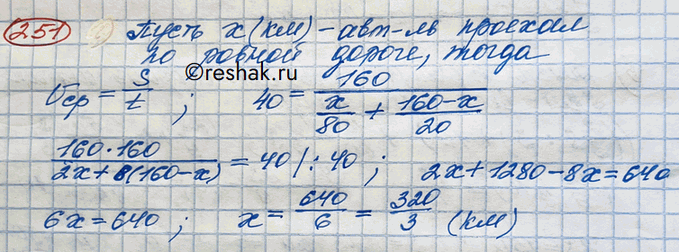 251 Пусть x (км) – авт-ль проехал
по ровной дороге, тогда
©reshak.ru
Vср = S/t ; 40 = 160/(x/80 + (160-x)/20)
160·160/(2x+8(160-x)) = 40 /:40 ; 2x+1280-8x=640
6x=640 ; x = 640/6 = 320/3 (км)